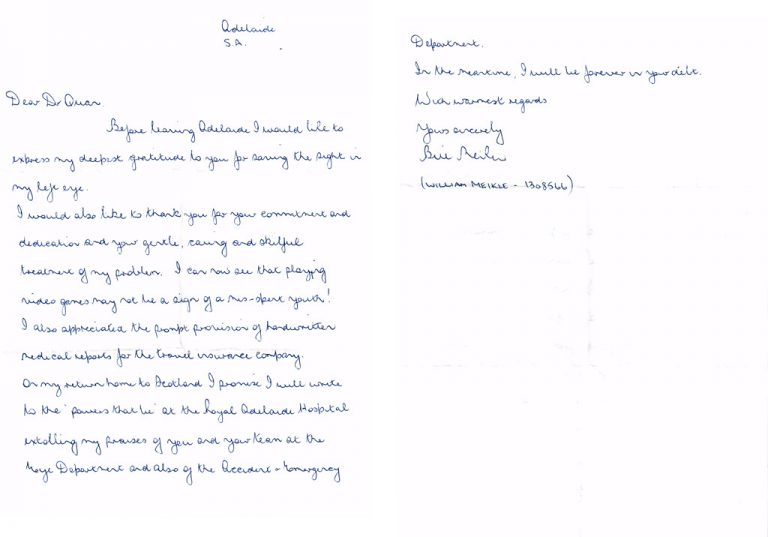 Adelaide
S.A.
Dear Dr Quan
Before leaving Adelaide I would like to
express my deepest gratitude to you for saving the sight in
my left eye.
I would also like to thank you for your commitment and
dedication and your gentle, caring and skilful
treatment of my problem. I can now see that playing
video games may not be a sign of a mis-spent youth!
I also appreciated the prompt provision of handwritten
medical reports for the travel insurance company.
On my return home to Scotland I promise I will write
to the 'powers that be' at the Royal Adelaide Hospital
extolling my praises of you and your team at the
Eye Department and also of the Accident + Emergency
Department.
In the meantime, I will be forever in your debt.
With warmest regards
Yours sincerely
Bill Meikle
(WILLIAM MEIKLE - 1308566)